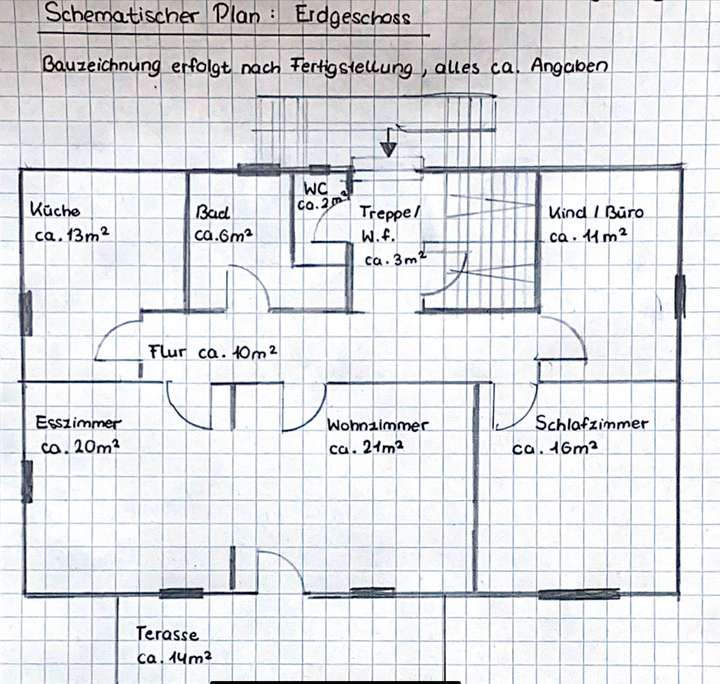 Schematischer Plan: Erdgeschoss
Bauzeichnung erfolgt nach Fertigstellung, alles ca. Angaben
Küche
ca. 13m²
Bad
ca. 6m²
WC
ca. 2m²
Treppe/
W.f.
ca. 3m²
Kind / Büro
ca. 11m²
Flur ca. 10m²
Esszimmer
ca. 20m²
Wohnzimmer
ca. 21m²
Schlafzimmer
ca. 16m²
Terasse
ca. 14m²